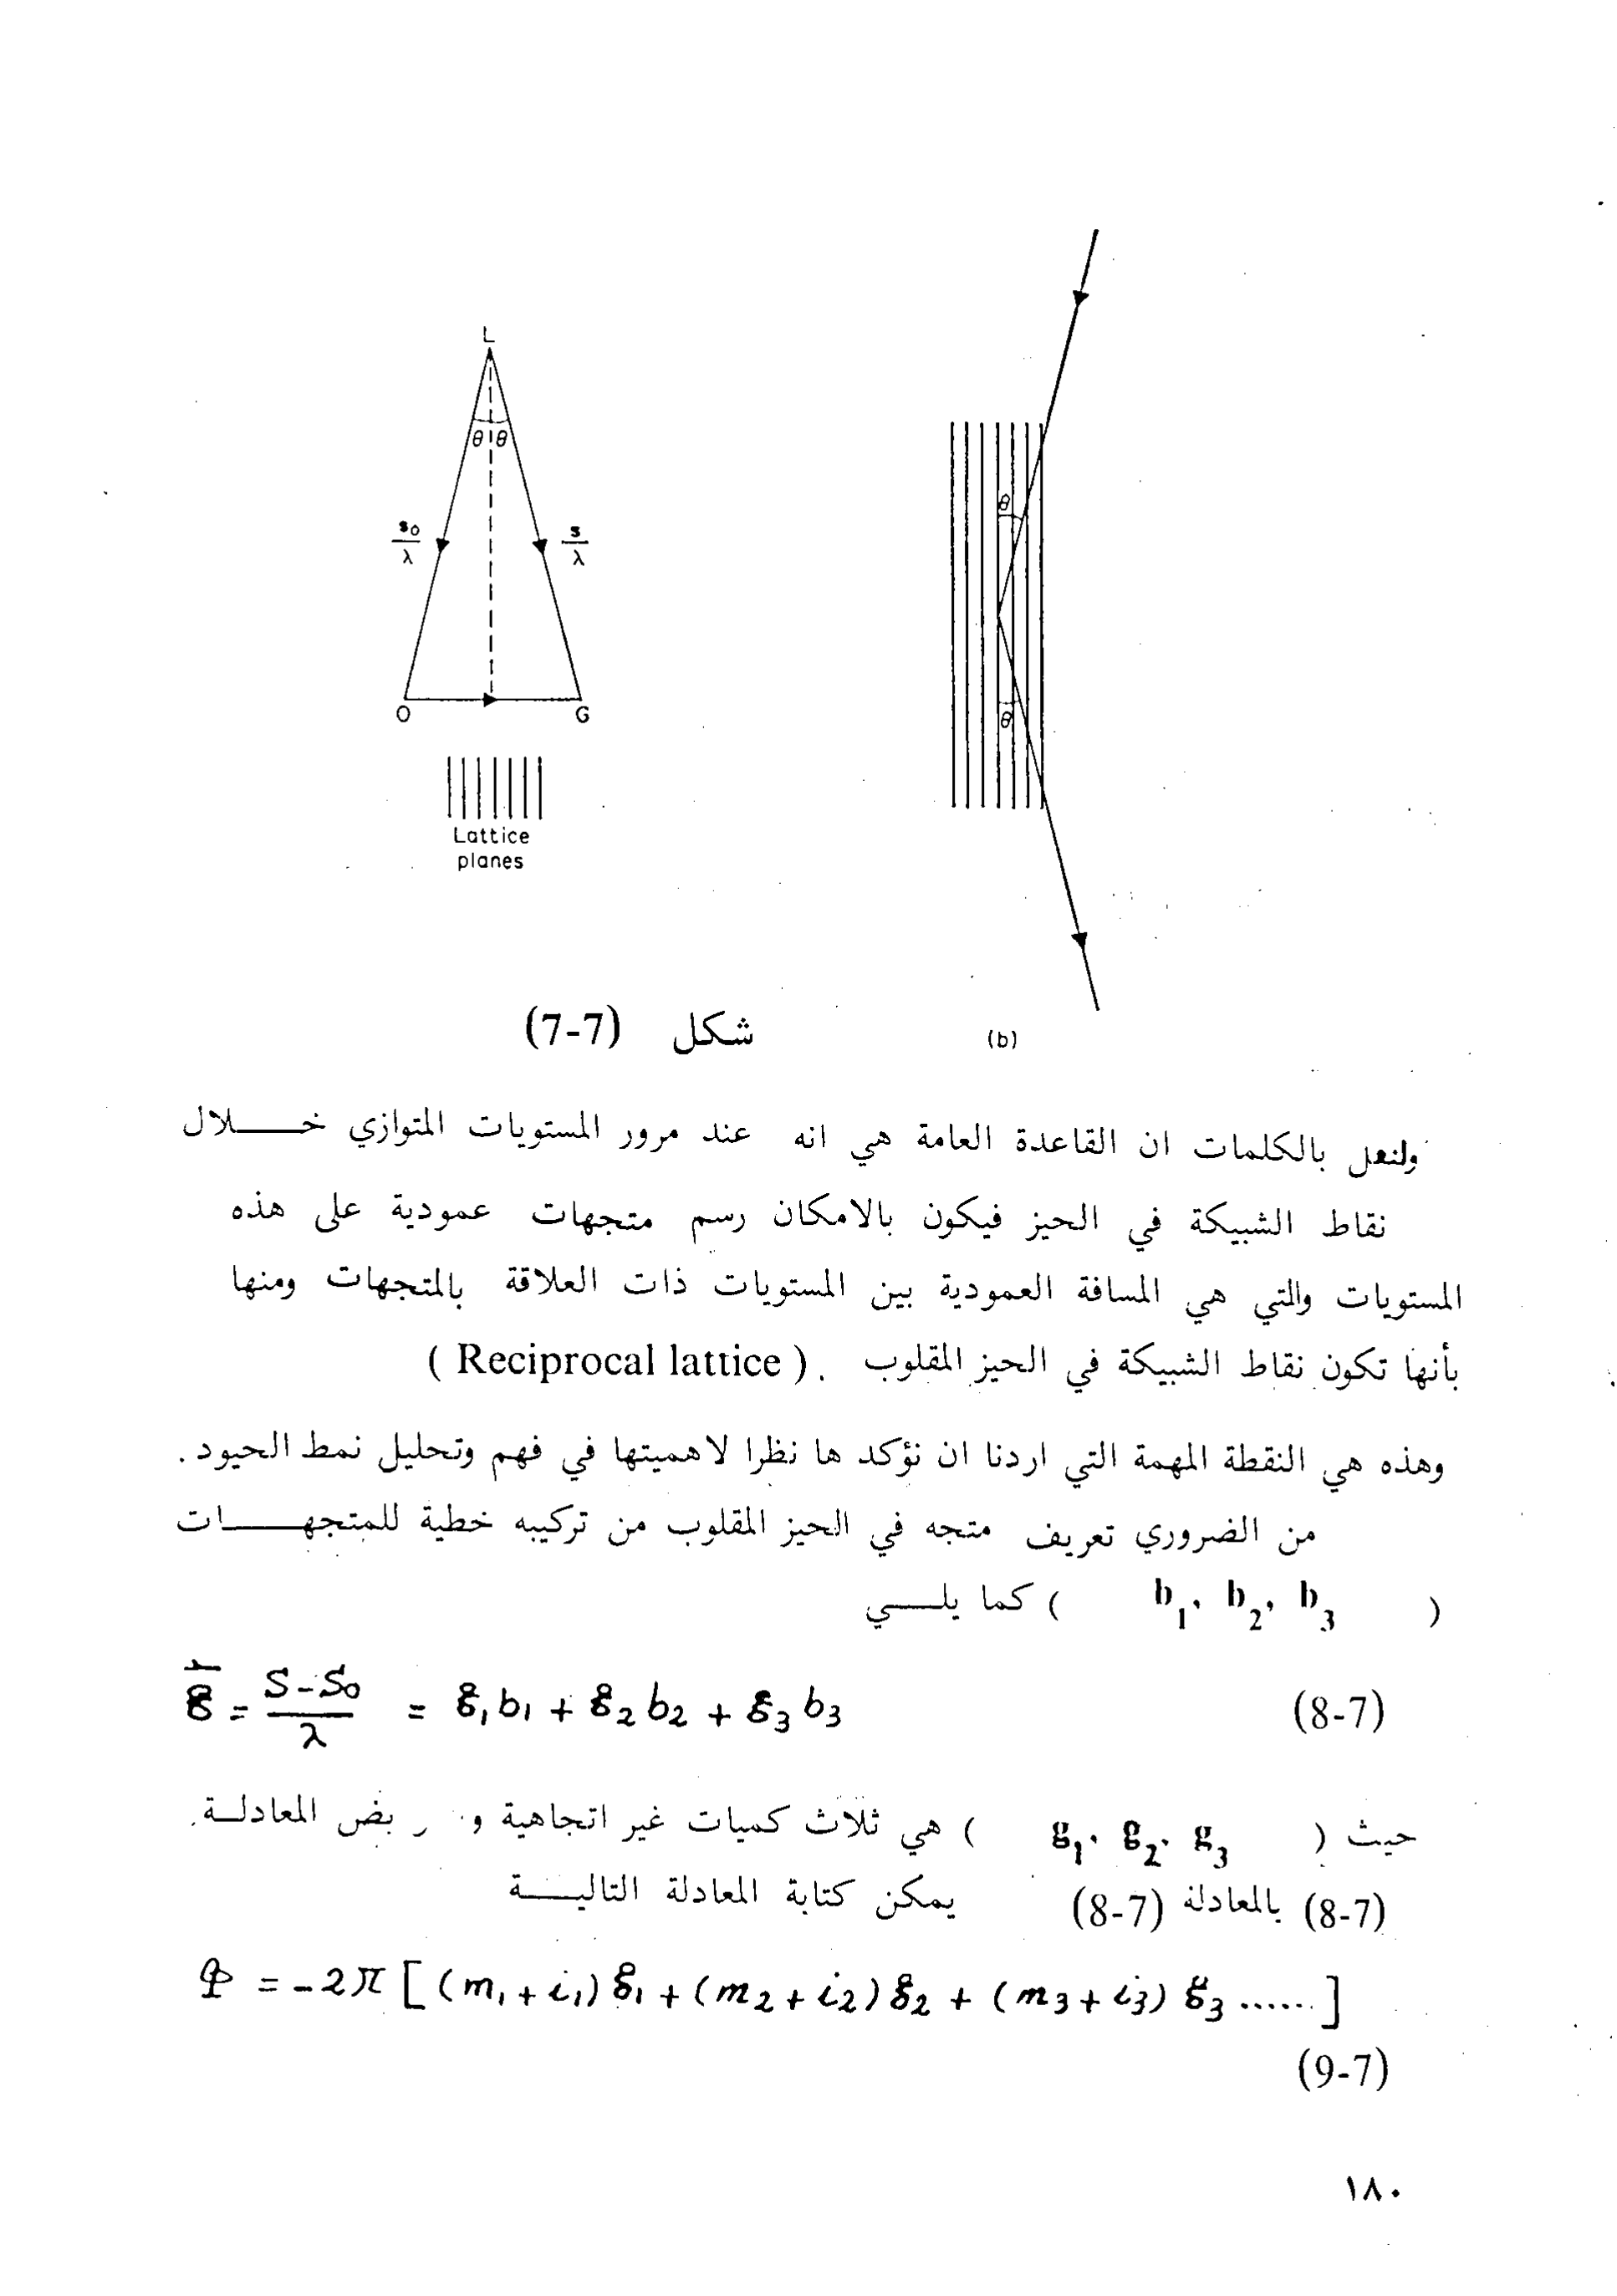 L
θ θ
s₀/λ
s/λ
θ
θ
O G
Lattice
planes
(b)
شكل (7-7)
ولنقل بالكلمات ان القاعدة العامة هي انه عند مرور المستويات المتوازي خـــلال
نقاط الشبيكة في الحيز فيكون بالامكان رسم متجهات عمودية على هذه
المستويات والتي هي المسافة العمودية بين المستويات ذات العلاقة بالمتجهات ومنها
بأنها تكون نقاط الشبيكة في الحيز المقلوب . ( Reciprocal lattice )
وهذه هي النقطة المهمة التي اردنا ان نؤكد ها نظرا لاهميتها في فهم وتحليل نمط الحيود .
من الضروري تعريف متجه في الحيز المقلوب من تركيبه خطية للمتجهـــات
( b₁, b₂, b₃ ) كما يلـــي
g = (S-S₀)/λ = g₁b₁ + g₂b₂ + g₃b₃ (8-7)
حيث ( g₁, g₂, g₃ ) هي ثلاث كميات غير اتجاهية و المعادلـة
(8-7) بالمعادلة (8-7) يمكن كتابة المعادلة التاليـــة
Φ = -2π [ (m₁+i₁) g₁ + (m₂+i₂) g₂ + (m₃+i₃) g₃ ...... ]
(9-7)
١٨٠